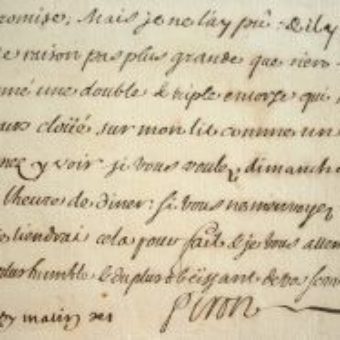 promise. Mais je ne l'ay pû: & il y
e raison pas plus grande que rien
né une double & triple entorse qui
urs cloüé sur mon lit comme un
y voir si vous voulez dimanche
l'heure de diner: si vous ne m'envoyez
e tiendrai cela pour fait & je vous atten
plus humble & du plus obëissant de vos serv
Piron
matin